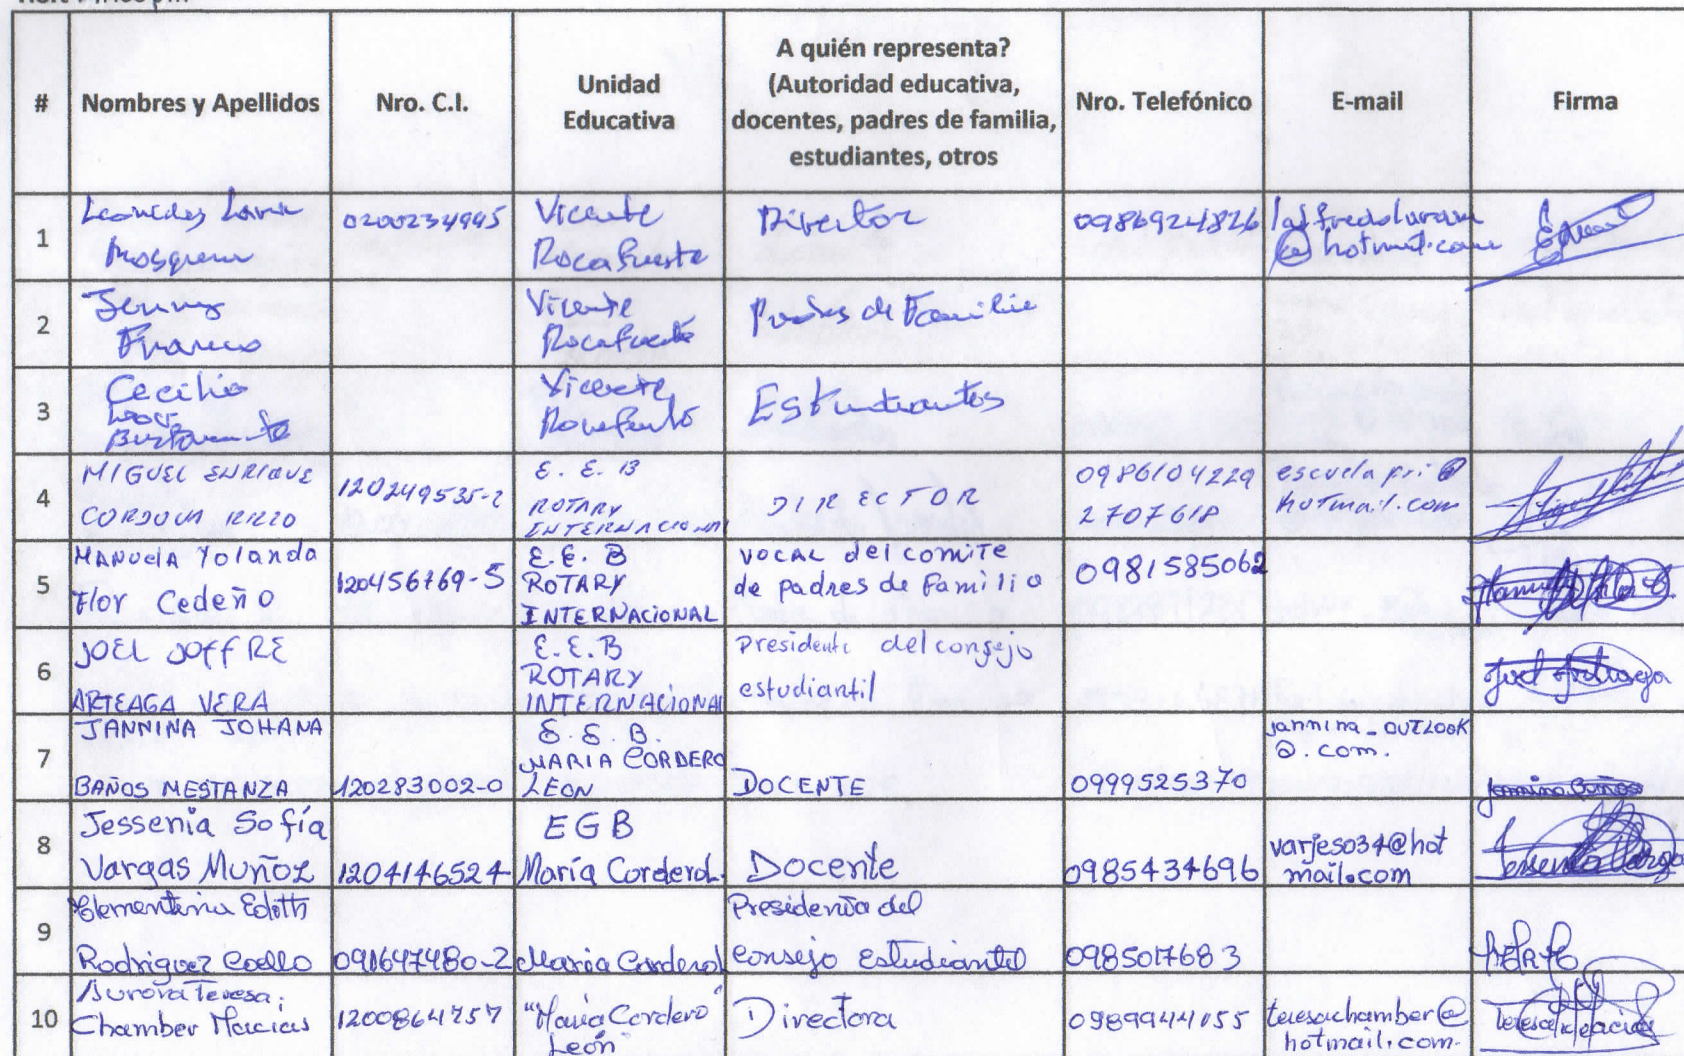 #
Nombres y Apellidos
Nro. C.I.
Unidad
Educativa
A quién representa?
(Autoridad educativa,
docentes, padres de familia,
estudiantes, otros
Nro. Telefónico
E-mail
Firma
1
Mosquera
0200234945
Vicente
Rocafuerte
Director
0986924826
@hotmail.com
2
Jenny
Franco
Vicente
Rocafuerte
Padres de Familia
3
Cecilia
Bustamante
Vicente
Rocafuerte
Estudiantes
4
MIGUEL ENRIQUE
CORDOVA RIZZO
120249535-2
E. E. B
ROTARY
INTERNACIONAL
DIRECTOR
0986104229
2707618
escuelapri@
hotmail.com
5
MANUElA Yolanda
Flor Cedeño
120456769-5
E.E. B
ROTARY
INTERNACIONAL
VOCAL del comite
de padres de familia
0981585062
6
JOEL JOFFRE
ARTEAGA VERA
E.E.B
ROTARY
INTERNACIONAL
Presidente del consejo
estudiantil
Joel Arteaga
7
JANNINA JOHANA
BAÑOS MESTANZA
120283002-0
E.E.B.
MARIA CORDERO
LEON
DOCENTE
0999525370
jannina_OUTLOOK
@.com.
Jannina Baños
8
Jessenia Sofía
Vargas Muñoz
1204146524
EGB
María Cordero L.
Docente
0985434696
varjeso34@hot
mail.com
Jessenia Vargas
9
Clementina Edith
Rodriguez Coello
091647480-2
Maria Cordero L
Presidenta del
consejo Estudiantil
0985017683
10
Aurora Teresa
Chamber Macias
1200864757
"Maria Cordero
León"
Directora
0989944055
teresachamber@
hotmail.com.